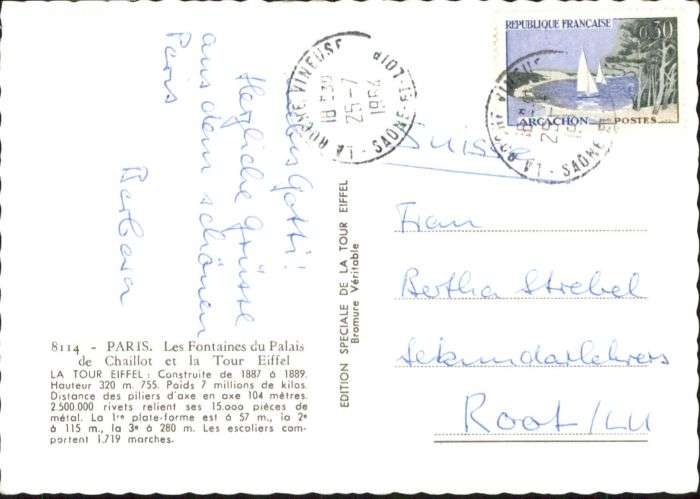 Liebes Gotti!
Herzliche Grüsse
aus dem schönen
Paris
Barbara
8114 - PARIS. Les Fontaines du Palais
de Chaillot et la Tour Eiffel
LA TOUR EIFFEL : Construite de 1887 à 1889.
Hauteur 320 m. 755. Poids 7 millions de kilos.
Distance des piliers d'axe en axe 104 mètres.
2.500.000 rivets relient ses 15.000 pièces de
métal. La 1re plate-forme est à 57 m., la 2e
à 115 m., la 3e à 280 m. Les escaliers com-
portent 1.719 marches.
EDITION SPECIALE DE LA TOUR EIFFEL
Bromure Véritable
LA ROCHE VINEUSE
18 H30
25-7
1964
SAONE-ET-LOIRE
REPUBLIQUE FRANÇAISE
0,30
ARCACHON POSTES
LA ROCHE VINEUSE
SAONE-ET
Suisse
Frau
Bertha Strebel
Sekundarlehrers
Root/LU